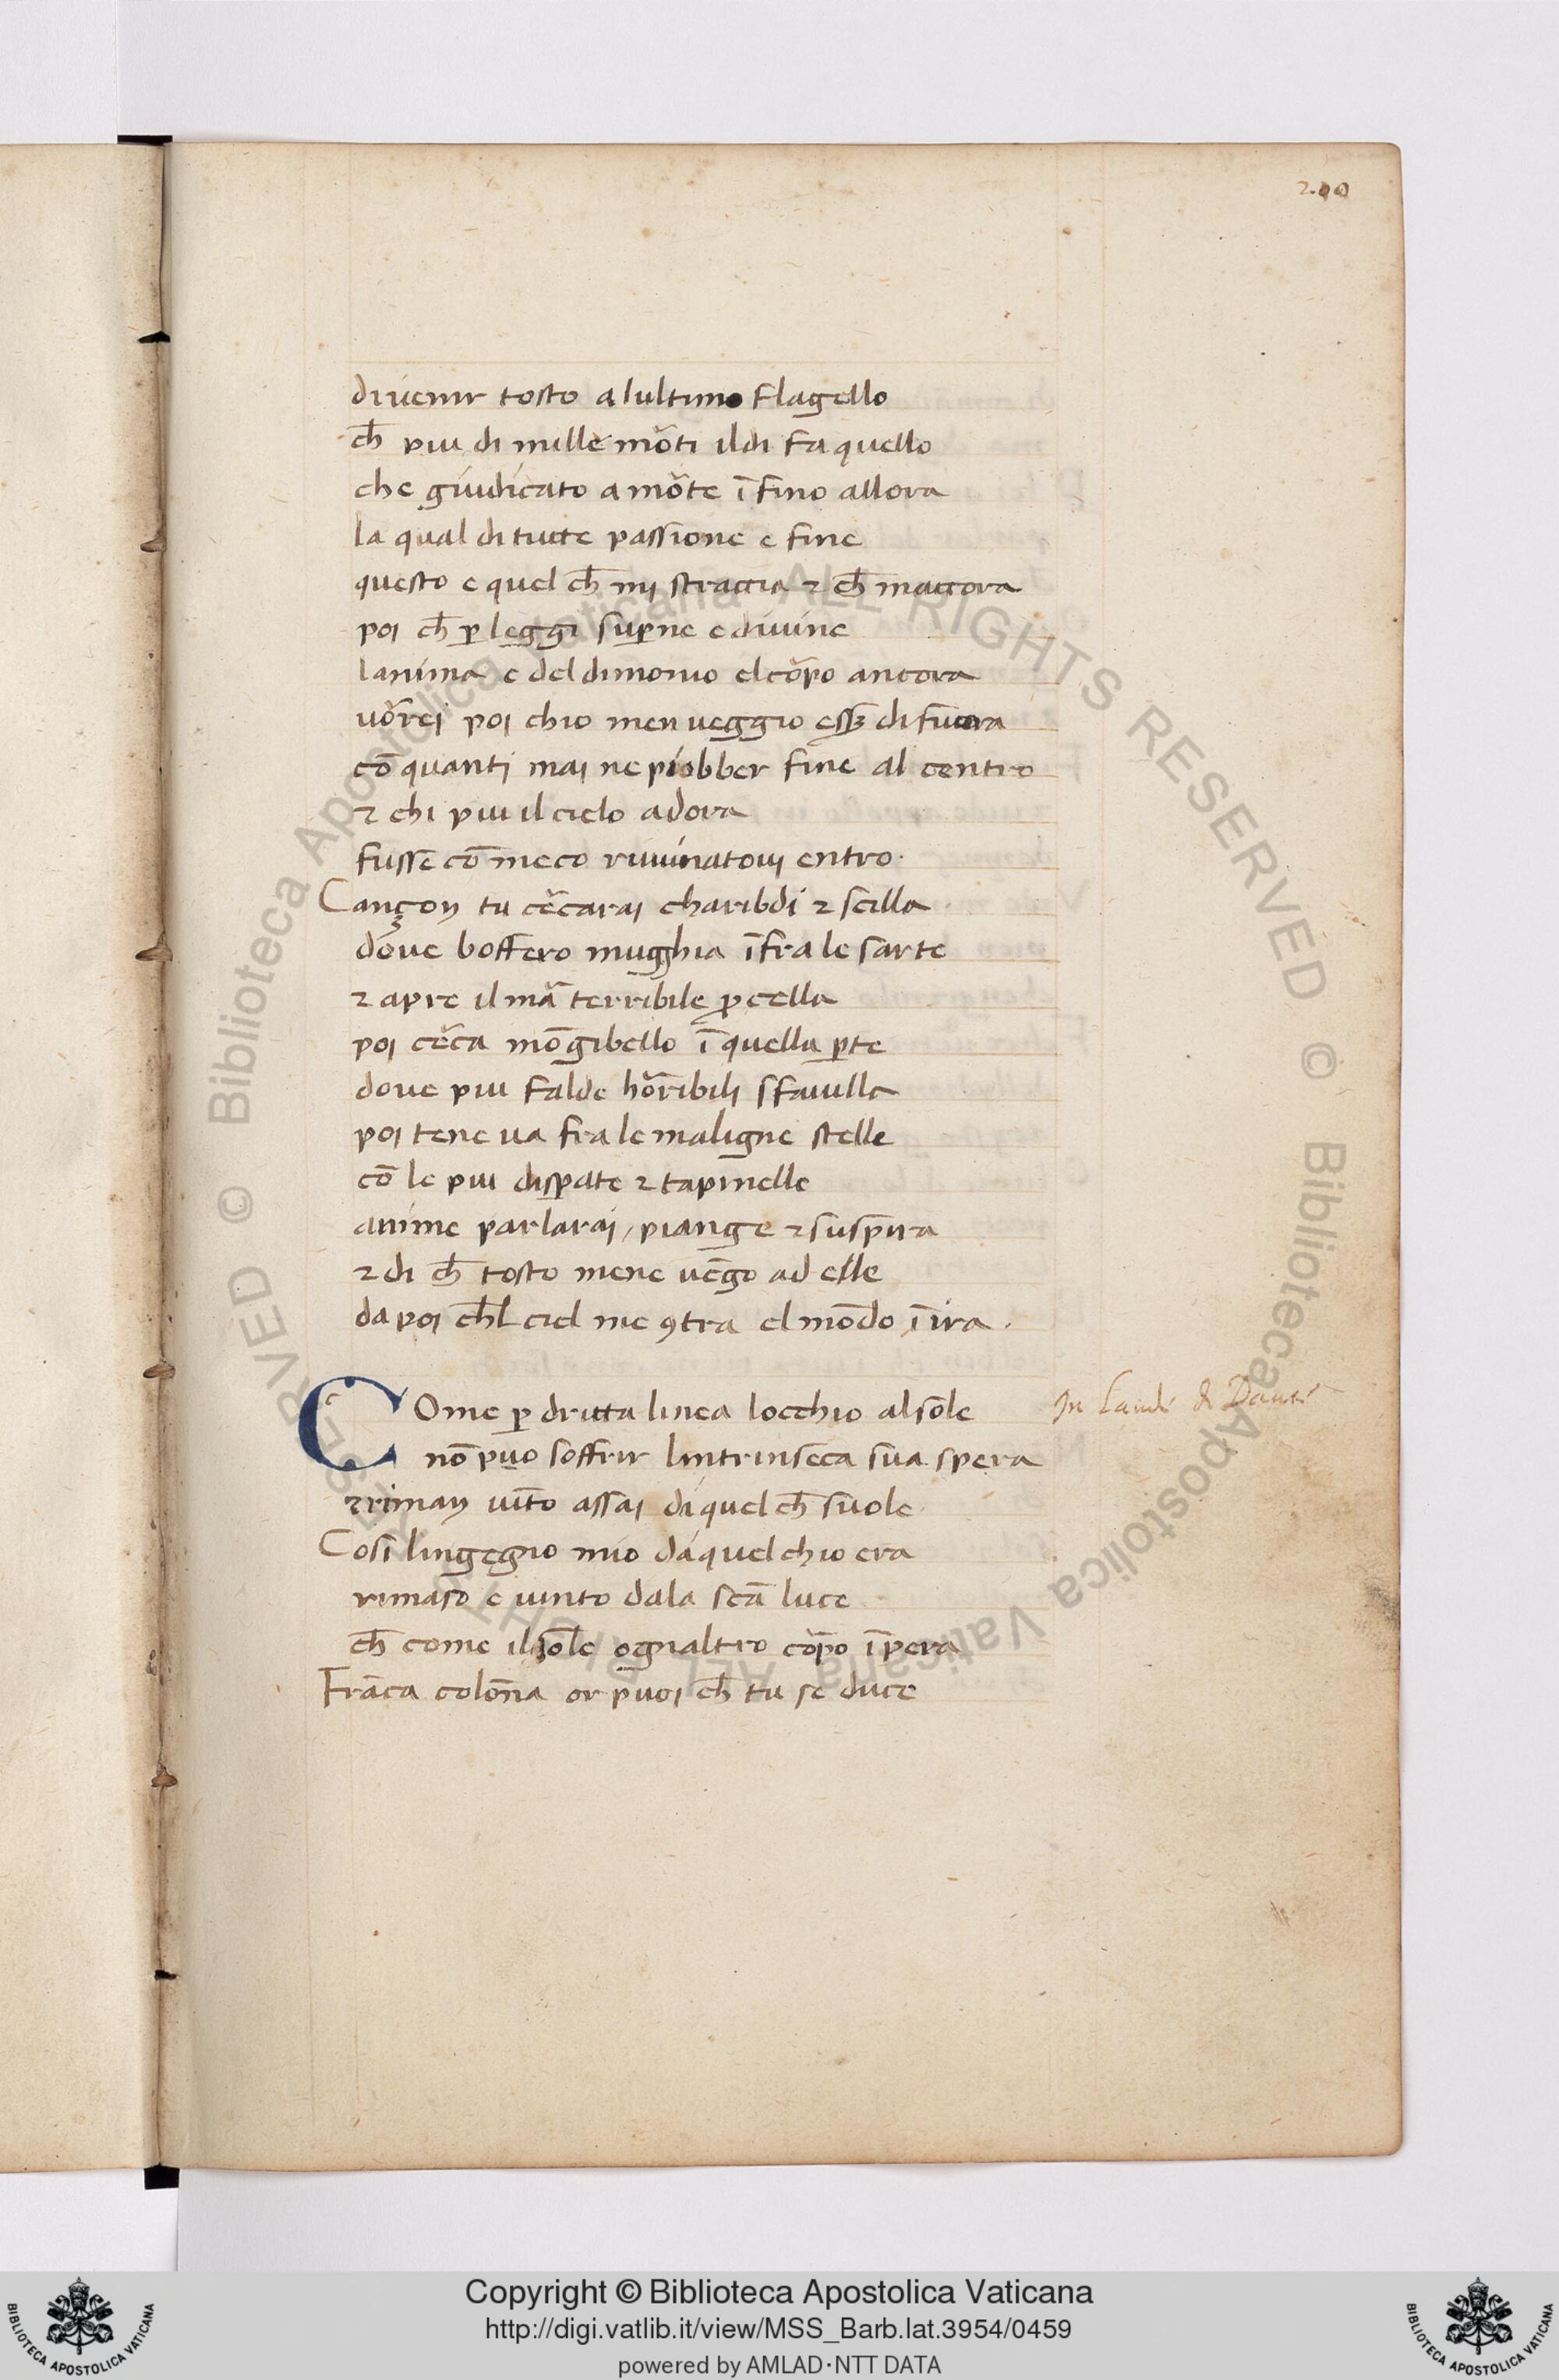 200
diuenir tosto alultimo flagello
ch̄ piu di mille mõti ildi fa quello
che giudicato a mõte ī fino allora
la qual di tutte passione e fine
questo e quel ch̄ mj straccia ⁊ ch̄ maccora
poi ch̄ ꝑ leggi suꝑne e diuine
lanima e del dimonio el corpo ancora
uorrei poi chio men ueggio esẜ di fuora
cō quanti mai ne piobber fine al centro
⁊ chi piu il cielo adora
fussē cō meco ruuinatoui entro.
Cançon tu cercarai charibdi ⁊ scilla
doue boffero mugghia ī fra le sarte
⁊ apre il mar terribile ꝓcella
poi cerca mōgibello ī quella ꝑte
doue piu falde horribili sfauilla
poi tene ua fra le maligne stelle
cō le piu disꝑate ⁊ tapinelle
anime parlarai, piange ⁊ suspira
⁊ di ch̄ tosto mene uēgo ad elle
da poi ch̄l ciel me ꝯtra el mōdo ī ira.
COme ꝑ dritta linea locchio alsole
In Laude di Dante
nō puo soffrir lintrinseca sua spera
⁊ riman uīto assai da quel ch̄ suole
Cosi lingegno mio da quel chio era
rimaso e uinto dala scā luce
ch̄ come ilsole ognialtro corpo īpera
Frāca colōna or puoi ch̄ tu se duce
Copyright © Biblioteca Apostolica Vaticana
http://digi.vatlib.it/view/MSS_Barb.lat.3954/0459
powered by AMLAD·NTT DATA
BIBLIOTECA APOSTOLICA VATICANA
BIBLIOTECA APOSTOLICA VATICANA
© Biblioteca Apostolica Vaticana ALL RIGHTS RESERVED © Biblioteca Apostolica Vaticana ALL RIGHTS RESERVED